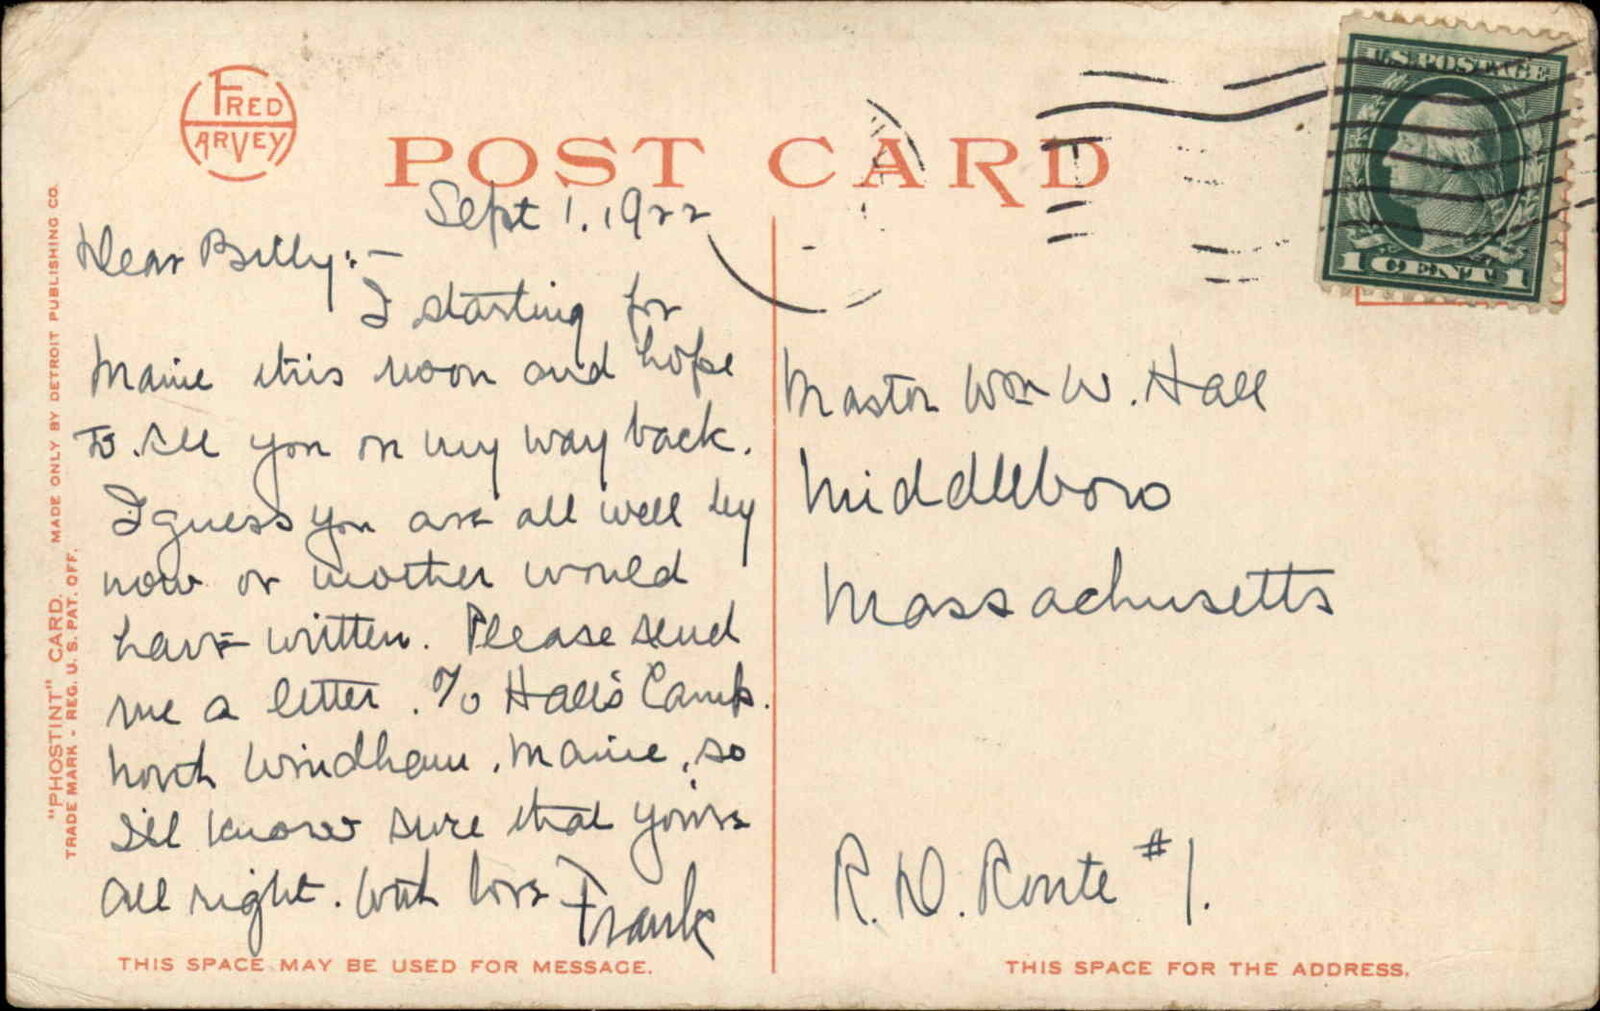 FRED HARVEY
POST CARD
U.S. POSTAGE
1 CENT 1
"PHOSTINT" CARD. MADE ONLY BY DETROIT PUBLISHING CO.
TRADE MARK - REG. U. S. PAT. OFF.
Sept 1, 1922
Dear Billy:-
I starting for
Maine this noon and hope
to see you on my way back.
I guess you are all well by
now or mother would
have written. Please send
me a letter. % Hall's Camp.
North Windham, Maine, so
I'll know sure that you're
all right. With love Frank
THIS SPACE MAY BE USED FOR MESSAGE.
Master Wm W. Hall
Middleboro
Massachusetts
R. D. Route #1.
THIS SPACE FOR THE ADDRESS.